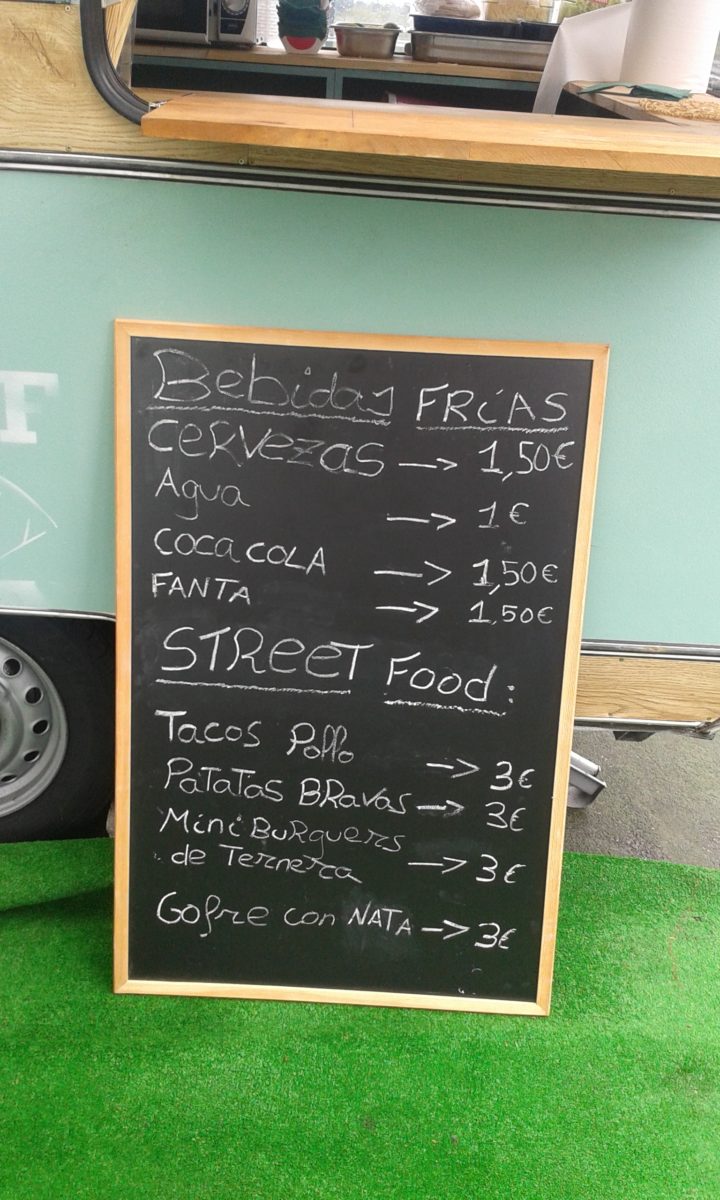 Bebidas FRíAS
CERVEZAS → 1,50€
Agua → 1€
COCA COLA → 1,50€
FANTA → 1,50€
STREET Food:
Tacos Pollo → 3€
PATATAS BRAVAS → 3€
Mini Burguers
de Ternera → 3€
Gofre con NATA → 3€